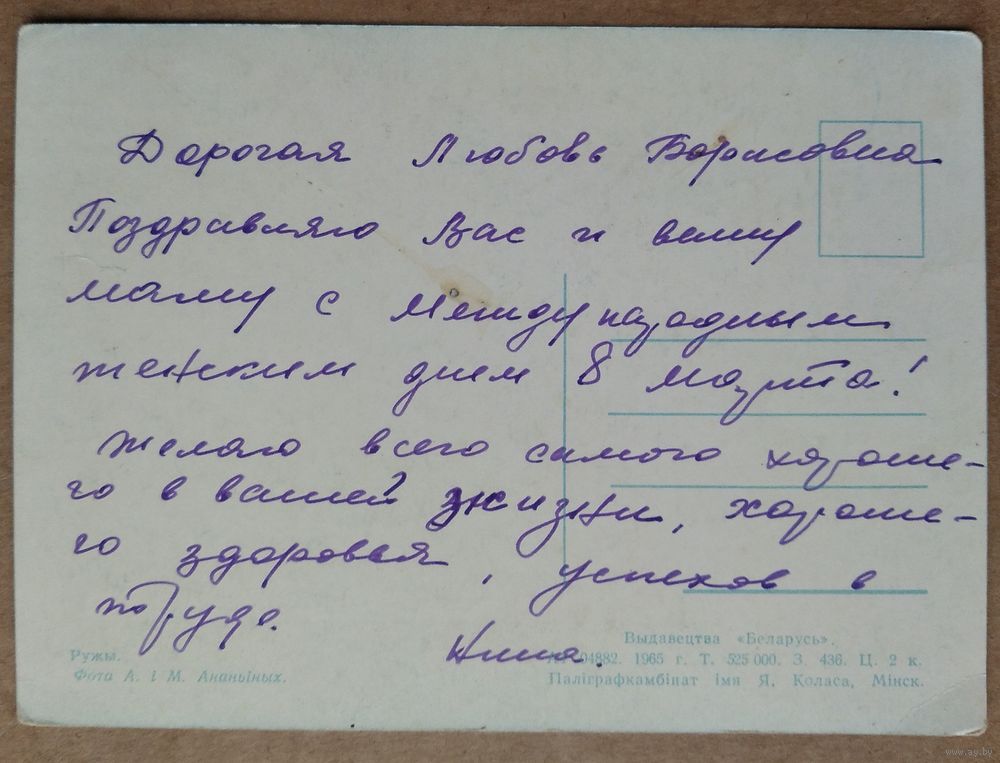 Дорогая Любовь Борисовна
Поздравляю Вас и вашу
маму с Международным
женским днем 8 марта!
желаю всего самого хороше-
го в вашей жизни, хороше-
го здоровья, успехов в
труде.
Нина.
Ружы.
Фота А. і М. Ананьіных.
Выдавецтва «Беларусь».
04882. 1965 г. Т. 525 000. З. 436. Ц. 2 к.
Паліграфкамбінат імя Я. Коласа, Мінск.
www.ay.by